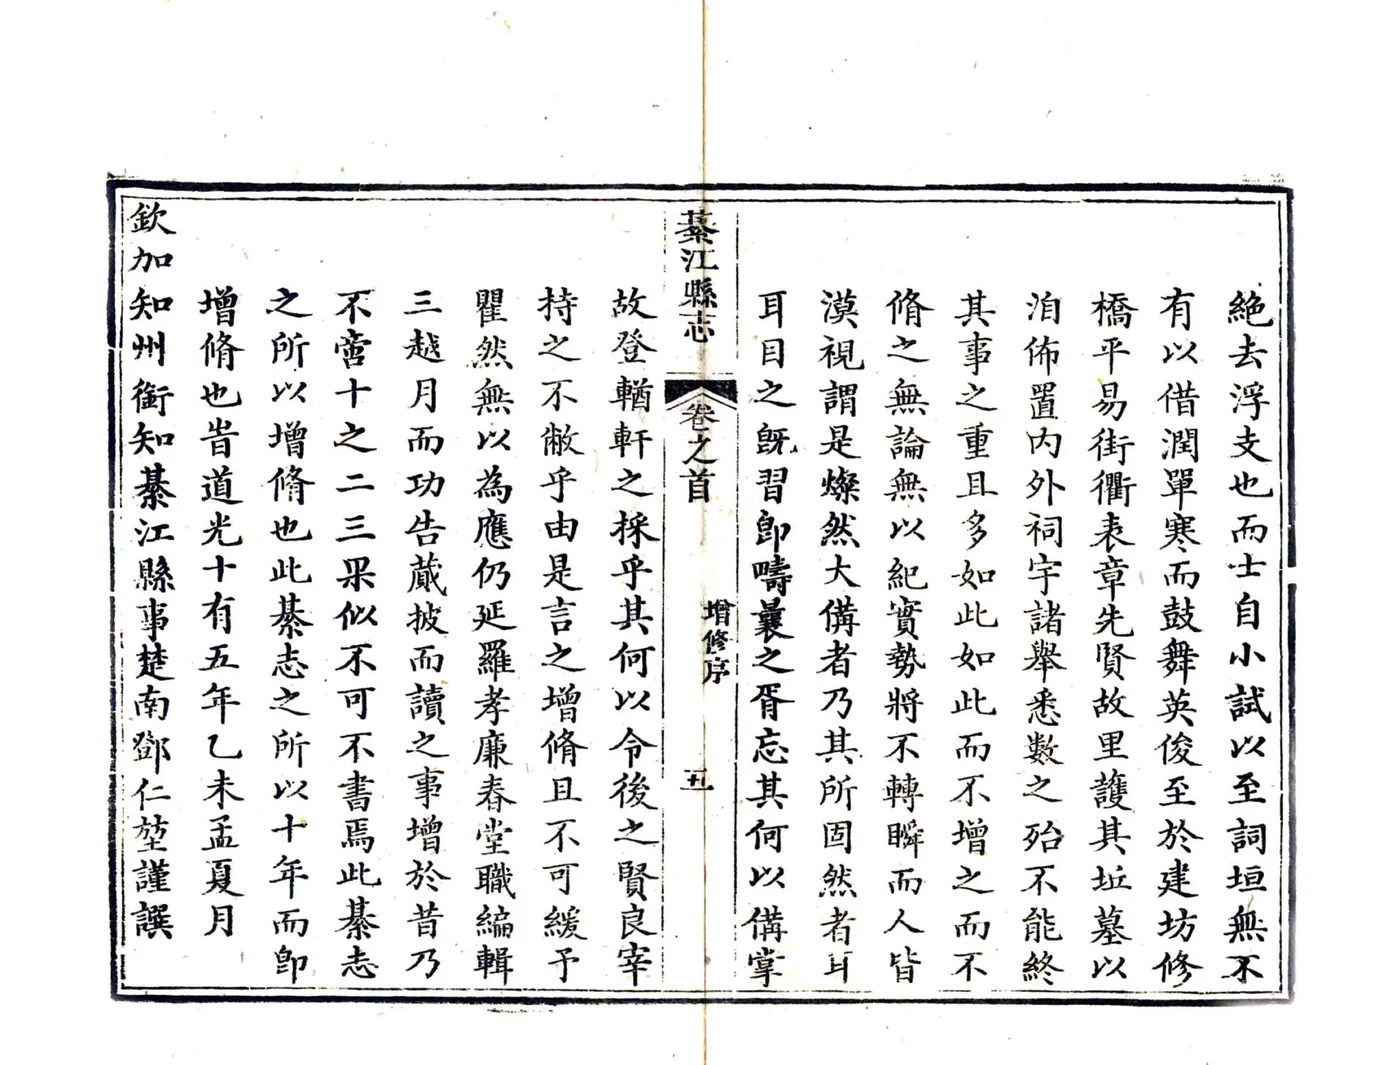 絶去浮支也而士自小試以至詞垣無不
有以借潤單寒而鼓舞英俊至於建坊修
橋平易街衢表章先賢故里䕶其坵墓以
洎佈置内外祠宇諸舉悉數之殆不能終
其事之重且多如此如此而不增之而不
脩之無論無以紀實勢將不轉瞬而人皆
漠視謂是燦然大備者乃其所固然者耳
耳目之旣習卽疇曩之胥忘其何以備掌
綦江縣志
卷之首
增修序
五
故登輶軒之採乎其何以令後之賢良宰
持之不敝乎由是言之增脩且不可緩予
瞿然無以為應仍延羅孝廉春堂職編輯
三越月而功告蕆披而讀之事增於昔乃
不啻十之二三果似不可不書焉此綦志
之所以增脩也此綦志之所以十年而卽
增脩也旹道光十有五年乙未孟夏月
欽加知州銜知綦江縣事楚南鄧仁堃謹譔